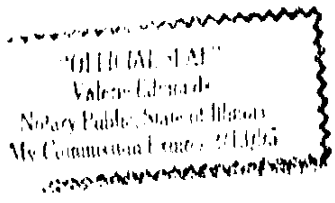 "OFFICIAL SEAL"
Valerie
Notary Public, State of Illinois
My Commission Expires